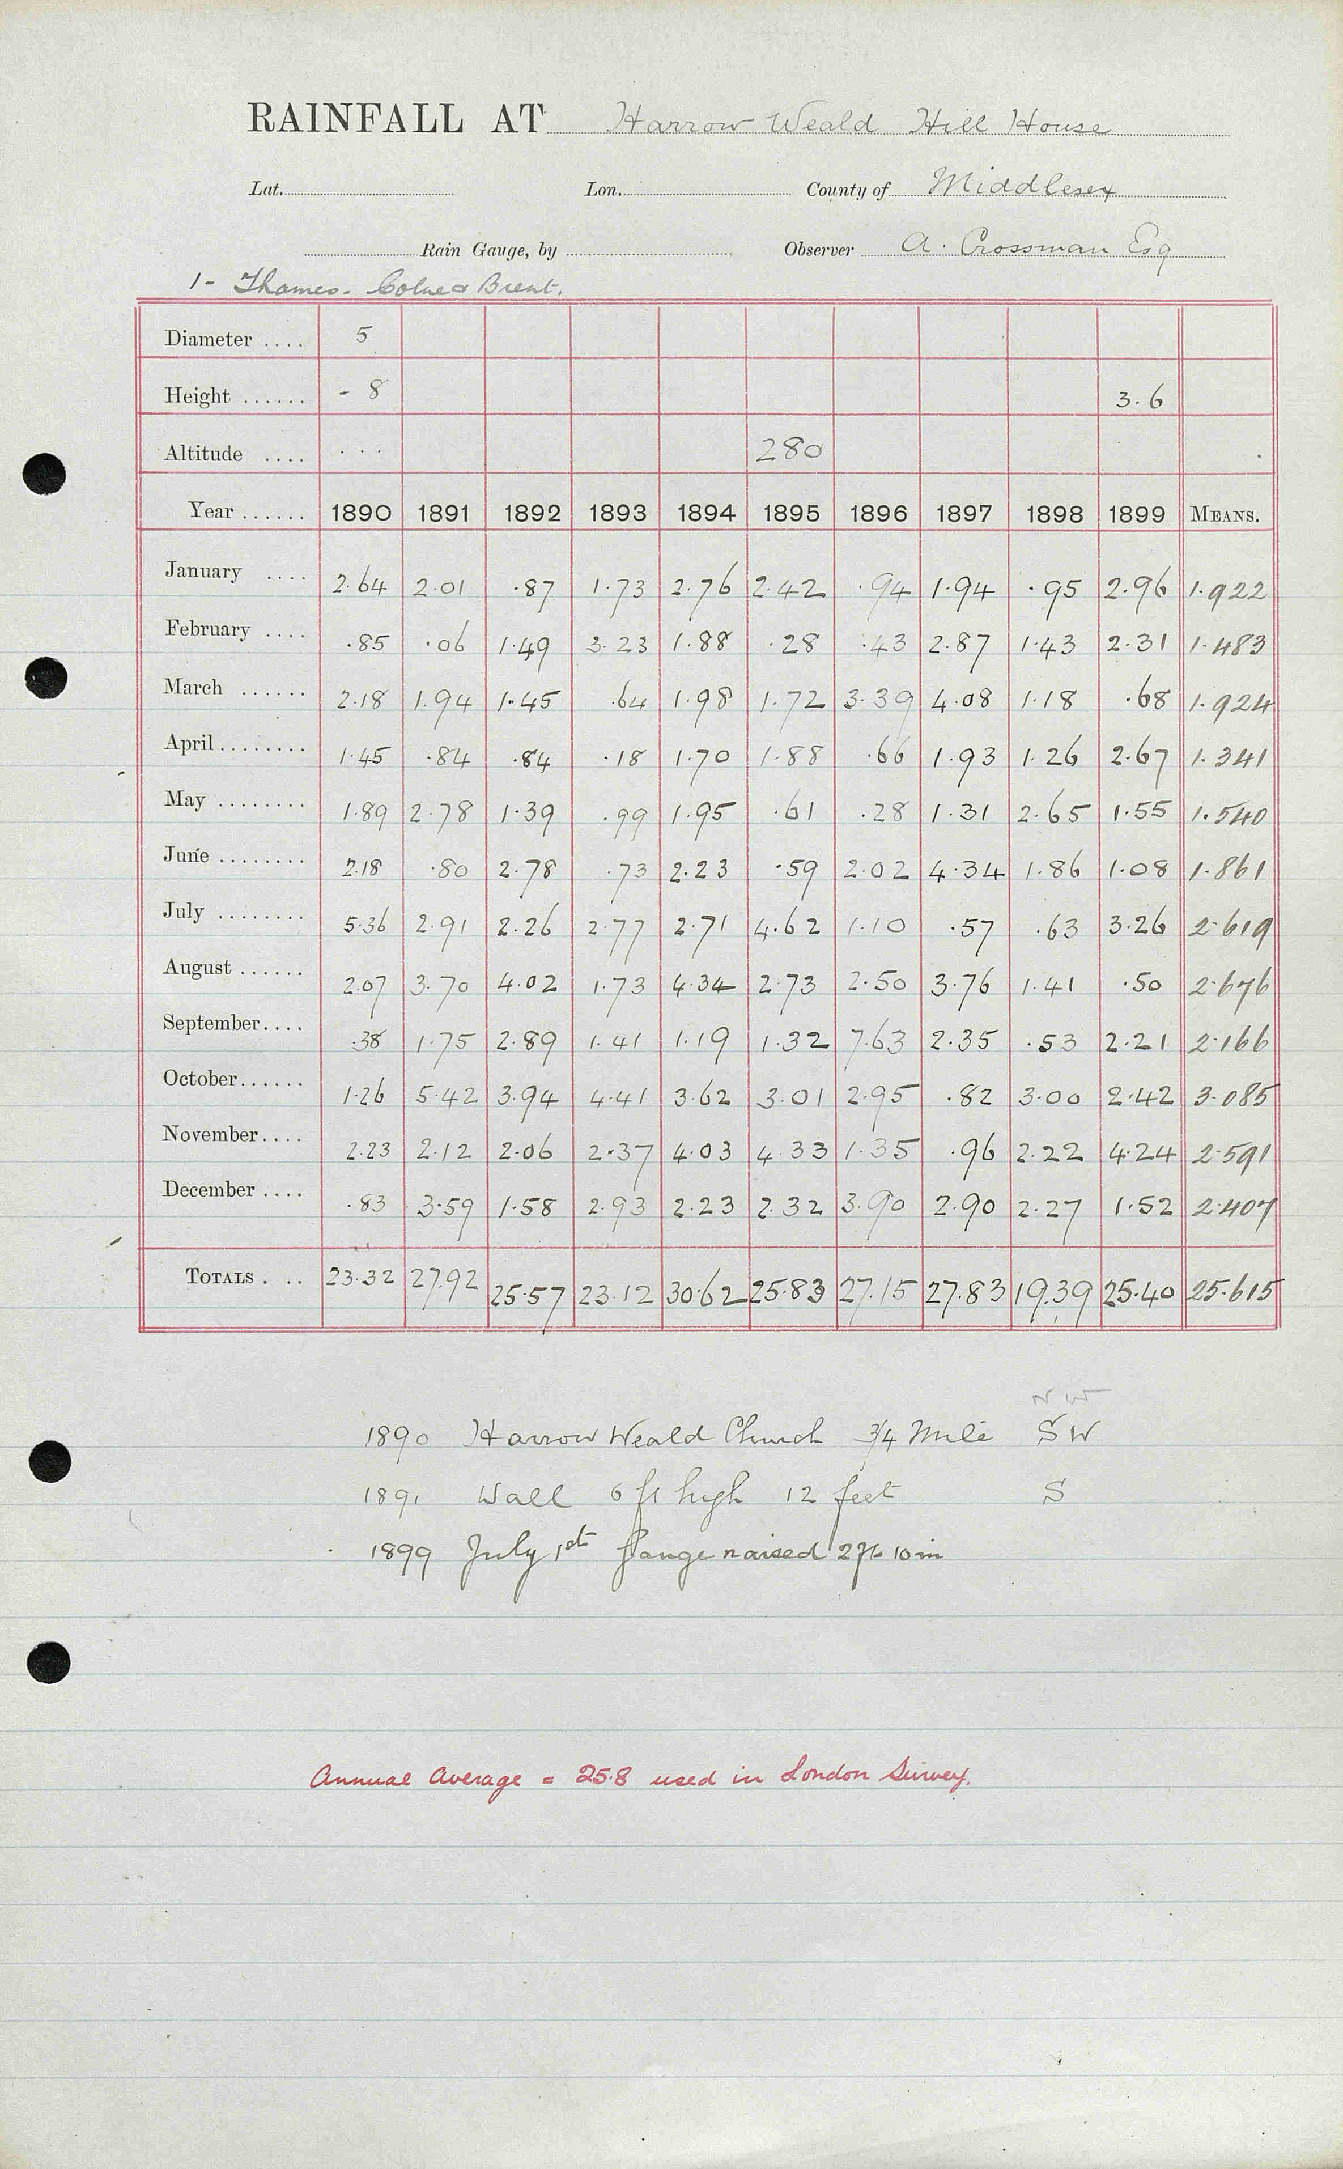 RAINFALL AT Harrow Weald Hill House
Lat. Lon. County of Middlesex
Rain Gauge, by Observer A. Crossman Esq
1 - Thames - Colne & Brent.
Diameter .... 5
Height ...... - 8 3.6
Altitude .... ... 280
Year ...... 1890 1891 1892 1893 1894 1895 1896 1897 1898 1899 MEANS.
January .... 2.64 2.01 .87 1.73 2.76 2.42 .94 1.94 .95 2.96 1.922
February .... .85 .06 1.49 3.23 1.88 .28 .43 2.87 1.43 2.31 1.483
March ...... 2.18 1.94 1.45 .64 1.98 1.72 3.39 4.08 1.18 .68 1.924
April ........ 1.45 .84 .84 .18 1.70 1.88 .66 1.93 1.26 2.67 1.341
May ........ 1.89 2.78 1.39 .99 1.95 .61 .28 1.31 2.65 1.55 1.540
June ........ 2.18 .80 2.78 .73 2.23 .59 2.02 4.34 1.86 1.08 1.861
July ........ 5.36 2.91 2.26 2.77 2.71 4.62 1.10 .57 .63 3.26 2.619
August ...... 2.07 3.70 4.02 1.73 4.34 2.73 2.50 3.76 1.41 .50 2.676
September.... .38 1.75 2.89 1.41 1.19 1.32 7.63 2.35 .53 2.21 2.166
October...... 1.26 5.42 3.94 4.41 3.62 3.01 2.95 .82 3.00 2.42 3.085
November.... 2.23 2.12 2.06 2.37 4.03 4.33 1.35 .96 2.22 4.24 2.591
December .... .83 3.59 1.58 2.93 2.23 2.32 3.90 2.90 2.27 1.52 2.407
TOTALS . .. 23.32 27.92 25.57 23.12 30.62 25.83 27.15 27.83 19.39 25.40 25.615
N W
1890 Harrow Weald Church 3/4 Mile S W
1891 Wall 6 ft high 12 feet S
1899 July 1st Gauge raised 2 ft 10 in
Annual Average = 25.8 used in London Survey.